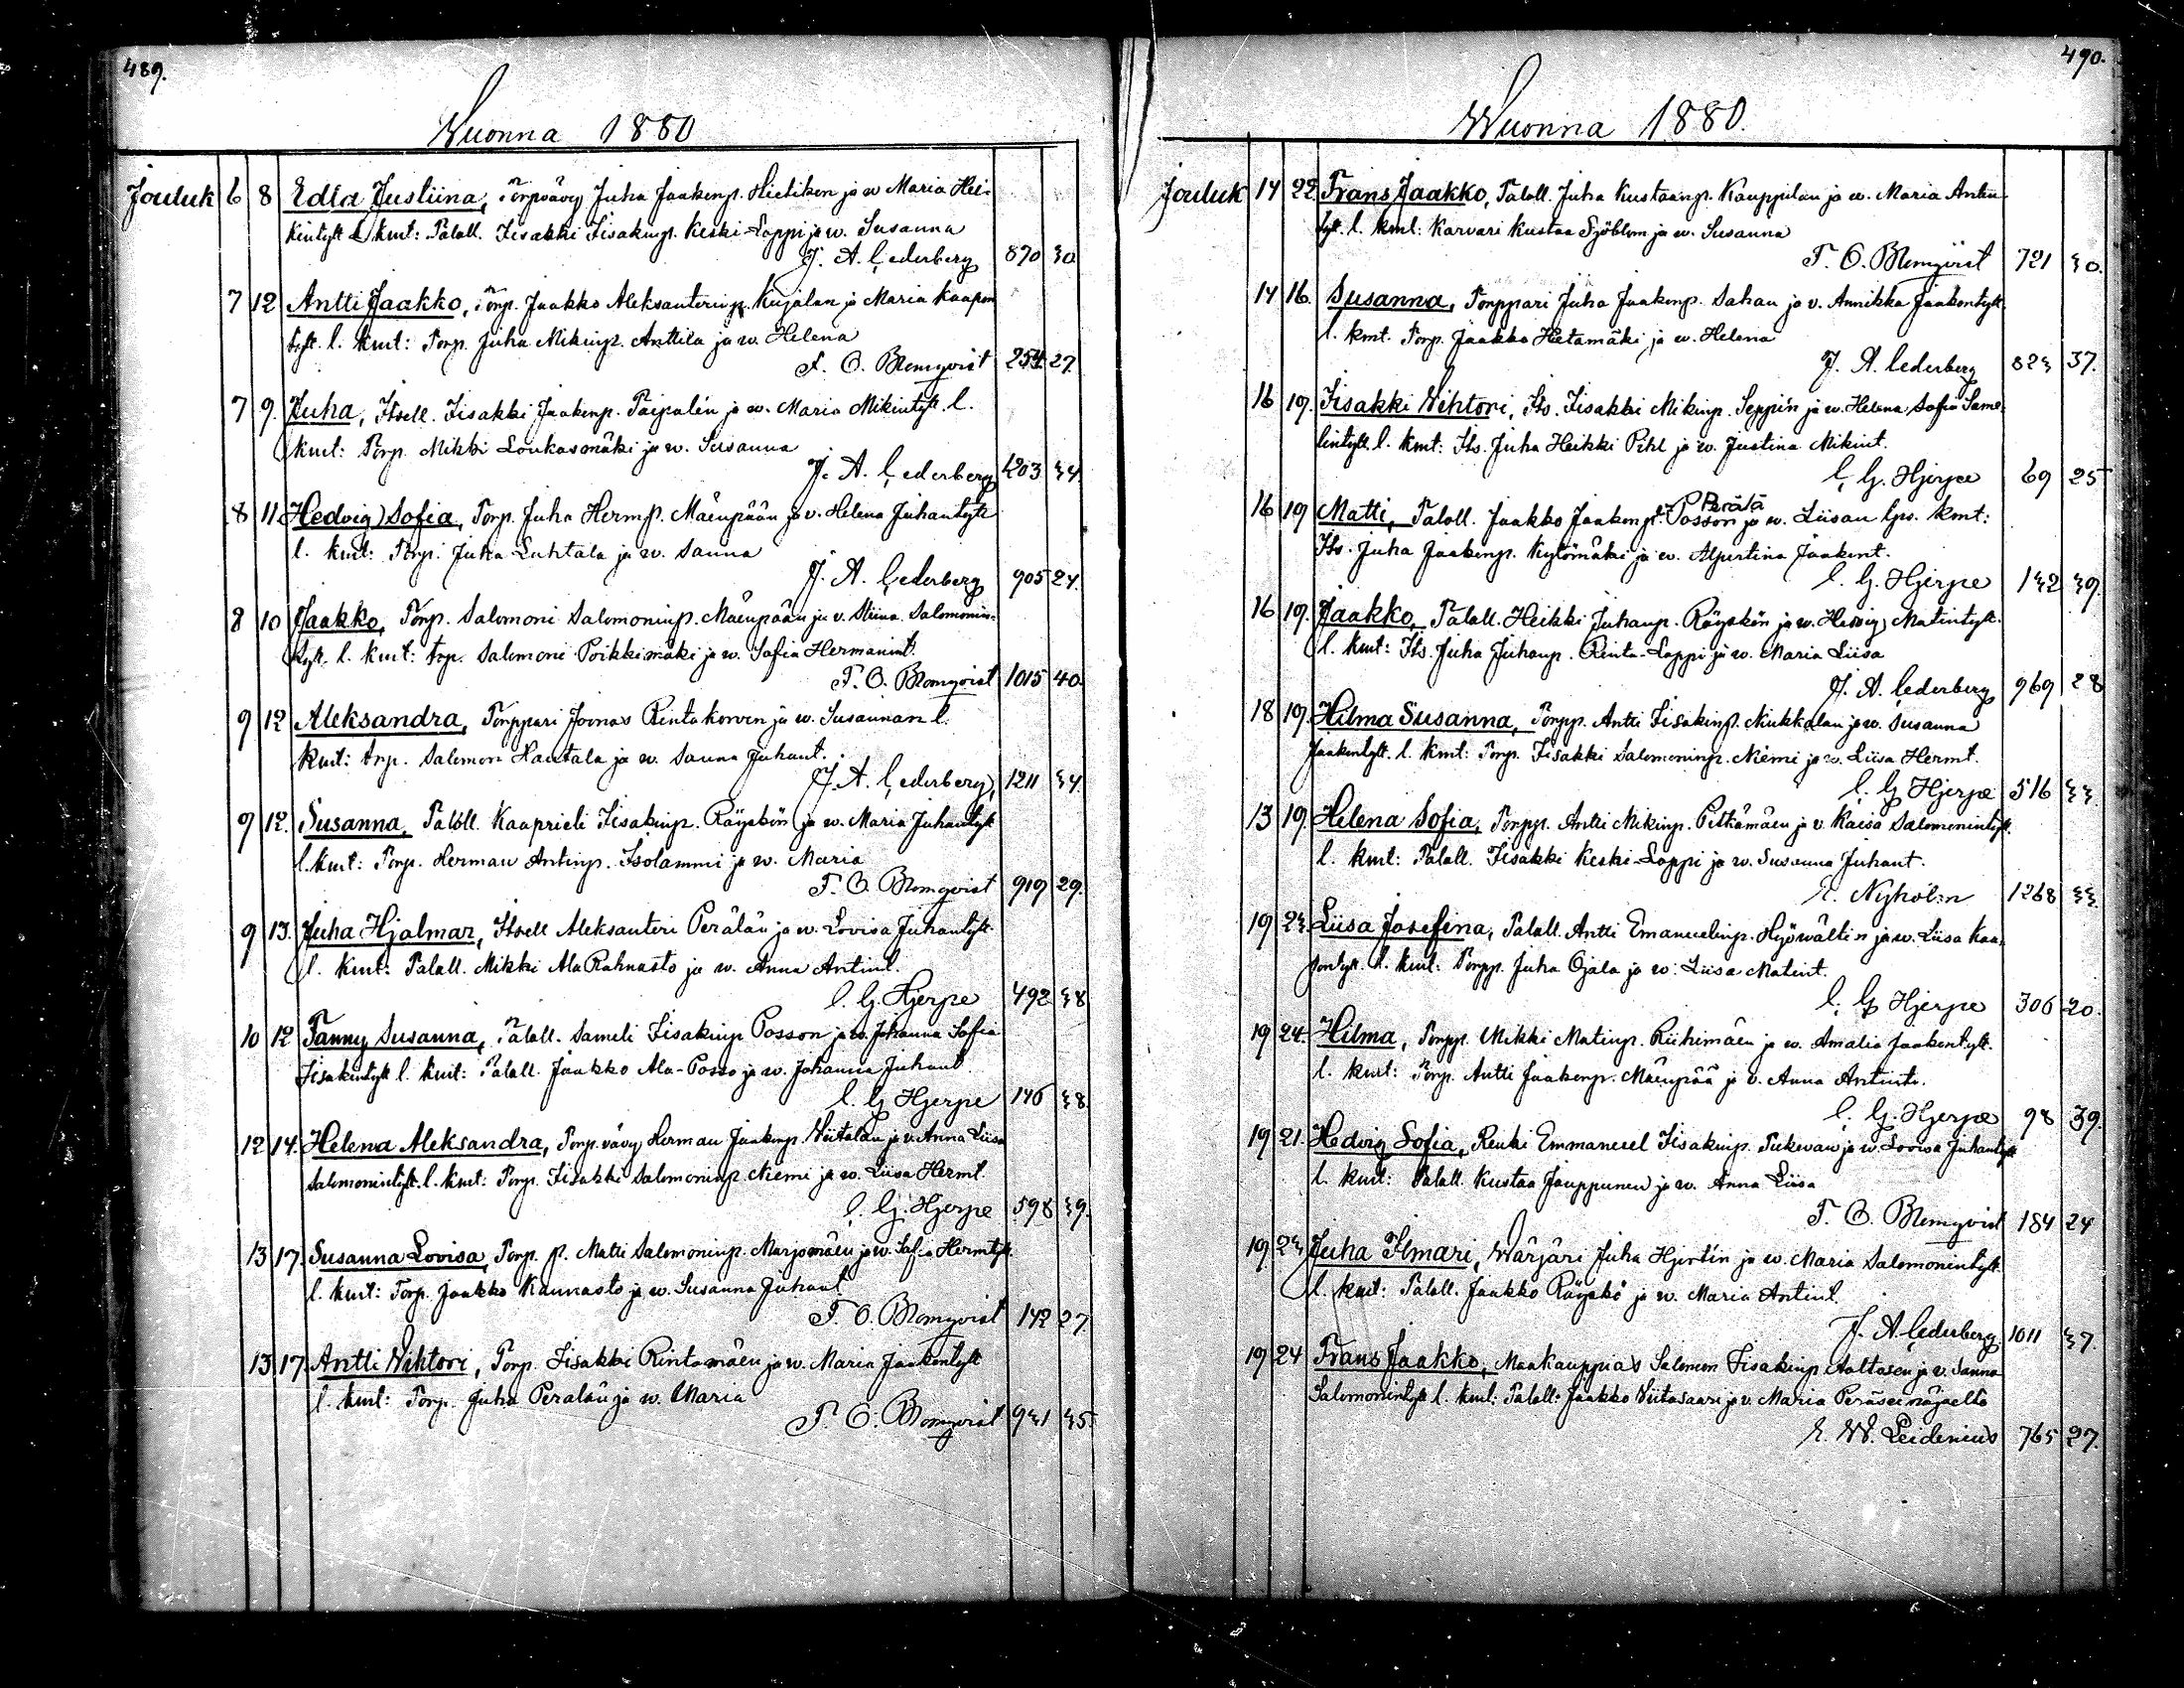 489.
Wuonna 1880
Jouluk 6 8 Edla Justiina, Torpvävy Juha Jaakonp. Hietiken ja w Maria Hei-
kintytt l. kmt: Taloll. Iisakki Iisakinp. Keski-Loppi ja w. Susanna
J. A. Cederberg 870 30
7 12 Antti Jaakko, Torp. Jaakko Aleksanterinp. Kujalan ja Maria Kaapon
tytt. l. kmt: Torp. Juha Mikinp. Anttila ja w. Helena
F. O. Blomqvist 254 27.
7 9. Juha, Itsell. Iisakki Jaakonp. Taipalén ja w. Maria Mikintytt. l.
kmt: Torp. Mikki Loukasmäki ja w. Susanna
J. A. Cederberg 1203 34.
8 11 Hedvig Sofia, Torp. Juha Hermp. Mäenpään ja v. Helena Juhantytt
l. kmt: Torp. Juha Luhtala ja w. Sanna
J. A. Cederberg 905 24.
8 10 Jaakko, Torp. Salomoni Salomoninp. Mäenpään ja v. Stiina Salomonin-
tytt. l. kmt: trp. Salomoni Poikkimäki ja w. Sofia Hermanint.
F. O. Blomqvist 1015 40.
9 12 Aleksandra, Torppari Joonas Rintakorven ja w. Susannan l.
kmt: trp. Salomon Hautala ja w. Sanna Juhant.
J. A. Cederberg, 1211 34.
9 12. Susanna, Taloll. Kaaprieli Iisakinp. Räyskön ja w. Maria Juhantytt
l. kmt: Torp. Herman Antinp. Isolammi ja w. Maria
F. O. Blomqvist 919 29.
9 13. Juha Hjalmar, Itsell Aleksanteri Perälän ja w. Lovisa Juhantytt.
l. kmt: Taloll. Mikki Ala Rahnasto ja w. Anna Antint.
C. G. Hjerpe 492 38
10 12 Fanny Susanna, Taloll. Sameli Iisakinp Posson ja w. Johanna Sofia
Iisakintytt l. kmt: Taloll. Jaakko Ala-Posso ja w. Johanna Juhant
C. G Hjerpe 146 38.
12 14. Helena Aleksandra, Torp. vävy Herman Jaakonp. Viitalan ja v. Anna Liisa
Salomonintytt. l. kmt: Torp. Iisakki Salomoninp. Niemi ja w. Liisa Hermt.
C. G. Hjerpe 598 39.
13 17. Susanna Lovisa, Torp. p. Matti Salomoninp. Marjomäen ja w. Sofia Hermtytt.
l. kmt: Torp. Jaakko Kannasto ja w. Susanna Juhant
F. O. Blomqvist 142 27.
13 17. Antti Wihtori, Torp. Iisakki Rintamäen ja w. Maria Jaakontytt
l. kmt: Torp. Juha Peralän ja w. Maria
F. O. Blomqvist 931 35.
490.
Wuonna 1880.
Jouluk 14 22. Frans Jaakko, Taloll. Juha Kustaanp. Kauppilan ja w. Maria Antin
tytt. l. kmt: Karvari Kustaa Sjöblom ja w. Susanna
F. O. Blomqvist 721 30.
14 16. Susanna, Torppari Juha Jaakonp. Sahan ja v. Annikka Jaakontytt.
l. kmt. Torp. Jaakko Hietamäki ja w. Helena
J. A. Cederberg 823 37.
16 19. Iisakki Wihtori, Its. Iisakki Mikinp. Seppin ja w. Helena Sofia Same-
lintytt. l. kmt: Its. Juha Heikki Pihl ja w. Justina Mikint.
C. G. Hjerpe 69 25
16 19 Matti, Taloll. Jaakko Jaakonp. Posson Perälä ja w. Liisan lps. kmt:
Its. Juha Jaakonp. Kytömäki ja w. Alpertina Jaakont.
C. G. Hjerpe 132 39.
16 19. Jaakko, Taloll. Heikki Juhanp. Räyskön ja w. Hedvig Matintytt.
l. kmt: Its. Juha Juhanp. Rinta-Loppi ja w. Maria Liisa
J. A. Cederberg 969 28
18 19. Hilma Susanna, Torpp. Antti Iisakinp. Niukkalan ja w. Susanna
Jaakontytt. l. kmt: Torp. Iisakki Salomoninp. Niemi ja w. Liisa Hermt.
C. G Hjerpe 516 33.
13 19. Helena Sofia, Torpp. Antti Mikinp. Pitkämäen ja v. Kaisa Salomonintytt.
l. kmt: Taloll. Iisakki Keski-Loppi ja w. Susanna Juhant.
E. Nyholm 1268 33.
19 23. Liisa Josefina, Taloll. Antti Emanuelinp. Hyöwältin ja w. Liisa Kaa-
pontytt. l. kmt: Torpp. Juha Ojala ja w. Liisa Matint.
C. G Hjerpe 306 20.
19 24. Hilma, Torpp. Mikki Matinp. Riihimäen ja w. Amalia Jaakontytt.
l. kmt: Torp. Antti Jaakonp. Mäenpää ja v. Anna Antint.
C. G. Hjerpe 98 39.
19 21. Hedvig Sofia, Renki Emmanuel Iisakinp. Tukevan ja w. Lovisa Juhantytt
l. kmt: Taloll. Kustaa Jauppunen ja w. Anna Liisa
F. O. Blomqvist 184 24
19. 23 Juha Ilmari, Wärjäri Juha Hjortin ja w. Maria Salomonintytt.
l. kmt: Taloll. Jaakko Räyskö ja w. Maria Antint.
J. A. Cederberg 1011 37.
19 24 Frans Jaakko, Maakauppias Salomon Iisakinp. Aaltosen ja v. Sanna
Salomonintytt l. kmt: Taloll: Jaakko Viitasaari ja v. Maria Peräseinäjoelta
E. W. Leidenius 765 27.